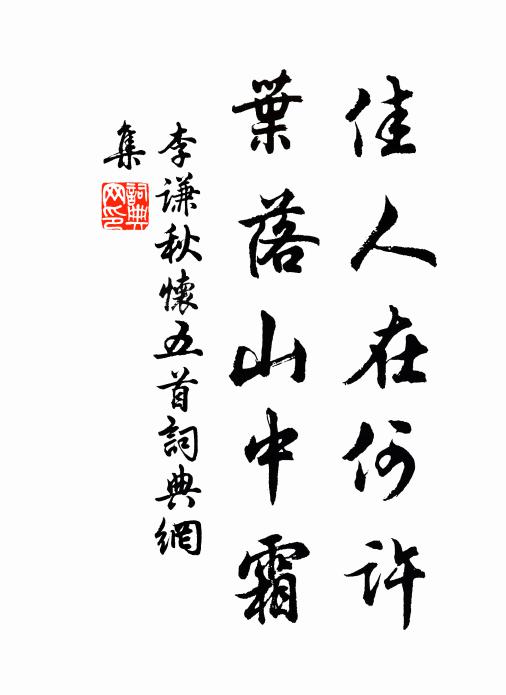 佳人在何許
葉落山中霜
李謙秋懷五首詞典網
集
詞典
网印